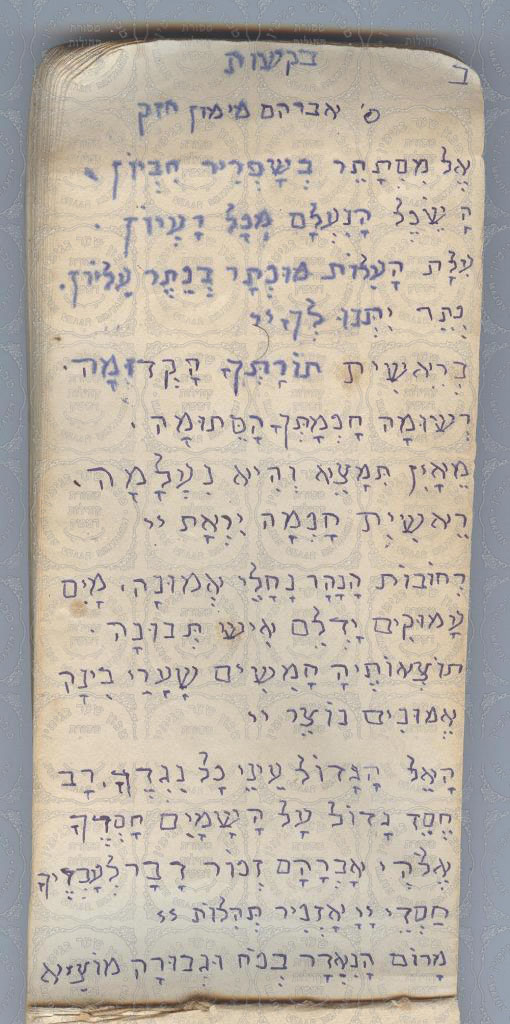 ב
בקשות
ס' אברהם מימון חזק
אֵל מִסְתַּתֵּר בְּשַׁפְרִיר חֶבְיוֹן.
הַשֵּׂכֶל הַנֶעְלָם מִכָּל רַעְיוֹן.
עִלַּת הָעִלּוֹת מוּכְתָּר בְּכֶתֶר עֶלְיוֹן.
כֶּתֶר יִתְּנוּ לְךָ יי
בְּרֵאשִׁית תּוֹרָתְךָ הַקְּדוּמָה.
רְשׁוּמָה חָכְמָתְךָ הַסְּתוּמָה.
מֵאַיִן תִּמָּצֵא וְהִיא נֶעְלָמָה.
רֵאשִׁית חָכְמָה יִרְאַת יי
רְחוֹבוֹת הַנָּהָר נַחֲלֵי אֱמוּנָה. מַיִם
עֲמוּקִים יִדְלֵם אִישׁ תְּבוּנָה.
תוֹצְאוֹתֶיהָ חֲמִשִּׁים שַׁעֲרֵי בִינָה
אֱמוּנִים נוֹצֵר יי
הָאֵל הַגָּדוֹל עֵינֵי כָל נֶגְדֶּךָ. רַב
חֶסֶד גָּדוֹל עַל הַשָּׁמַיִם חַסְדֶּךָ
אֱלֹהֵי אַבְרָהָם זְכוֹר דָּבָר לְעַבְדֶּיךָ
חַסְדֵי יְיָ אַזְכִּיר תְּהִלּוֹת יי
מָרוֹם הַנֶּאְדָּר בְּכֹח וּגְבוּרָה מוֹצִיא